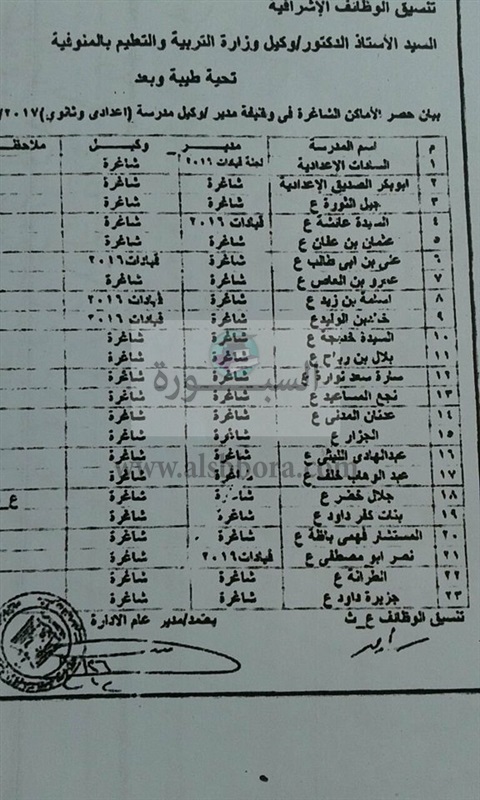 تنسيق الوظائف الإشرافيه
السيد الأستاذ الدكتور/وكيل وزارة التربية والتعليم بالمنوفية
تحية طيبة وبعد
بيان حصر الأماكن الشاغرة فى وظيفة مدير /وكيل مدرسة (اعدادى وثانوى)٢٠١٧/
م اسم المدرسة مديـر وكيـل ملاحظ
١ السادات الإعدادية لجنة قيادات ٢٠١٦ شاغرة
٢ ابوبكر الصديق الإعدادية شاغرة شاغرة
٣ جيل الثورة ع شاغرة شاغرة
٤ السيدة عائشة ع قيادات ٢٠١٦ شاغرة
٥ عثمان بن عفان ع شاغرة شاغرة
٦ على بن ابى طالب ع شاغرة قيادات ٢٠١٦
٧ عمرو بن العاص ع شاغرة شاغرة
٨ اسامة بن زيد ع شاغرة قيادات ٢٠١٦
٩ خالدبن الوليدع شاغرة قيادات ٢٠١٦
١٠ السيدة خديجه ع شاغرة شاغرة
١١ بلال بن رباح ع شاغرة شاغرة
١٢ سارة سعد نوارة ع شاغرة شاغرة
١٣ نجع المساعيد ع شاغرة شاغرة
١٤ عدنان المدنى ع شاغرة شاغرة
١٥ الجزار ع شاغرة شاغرة
١٦ عبدالهادى الليثى ع شاغرة شاغرة
١٧ عبد الوهاب خلف ع شاغرة شاغرة
١٨ جلال خضر ع شاغرة شاغرة ع_
١٩ بنات كفر داود ع شاغرة شاغرة
٢٠ المستشار فهمى باظة ع شاغرة شاغرة
٢١ نصر ابو مصطفى ع قيادات ٢٠١٦ شاغرة
٢٢ الطرانة ع شاغرة شاغرة
٢٣ جزيرة داود ع شاغرة شاغرة
السبورة
www.alsbbora.com
تنسيق الوظائف ع_ث يعتمد/مدير عام الادارة